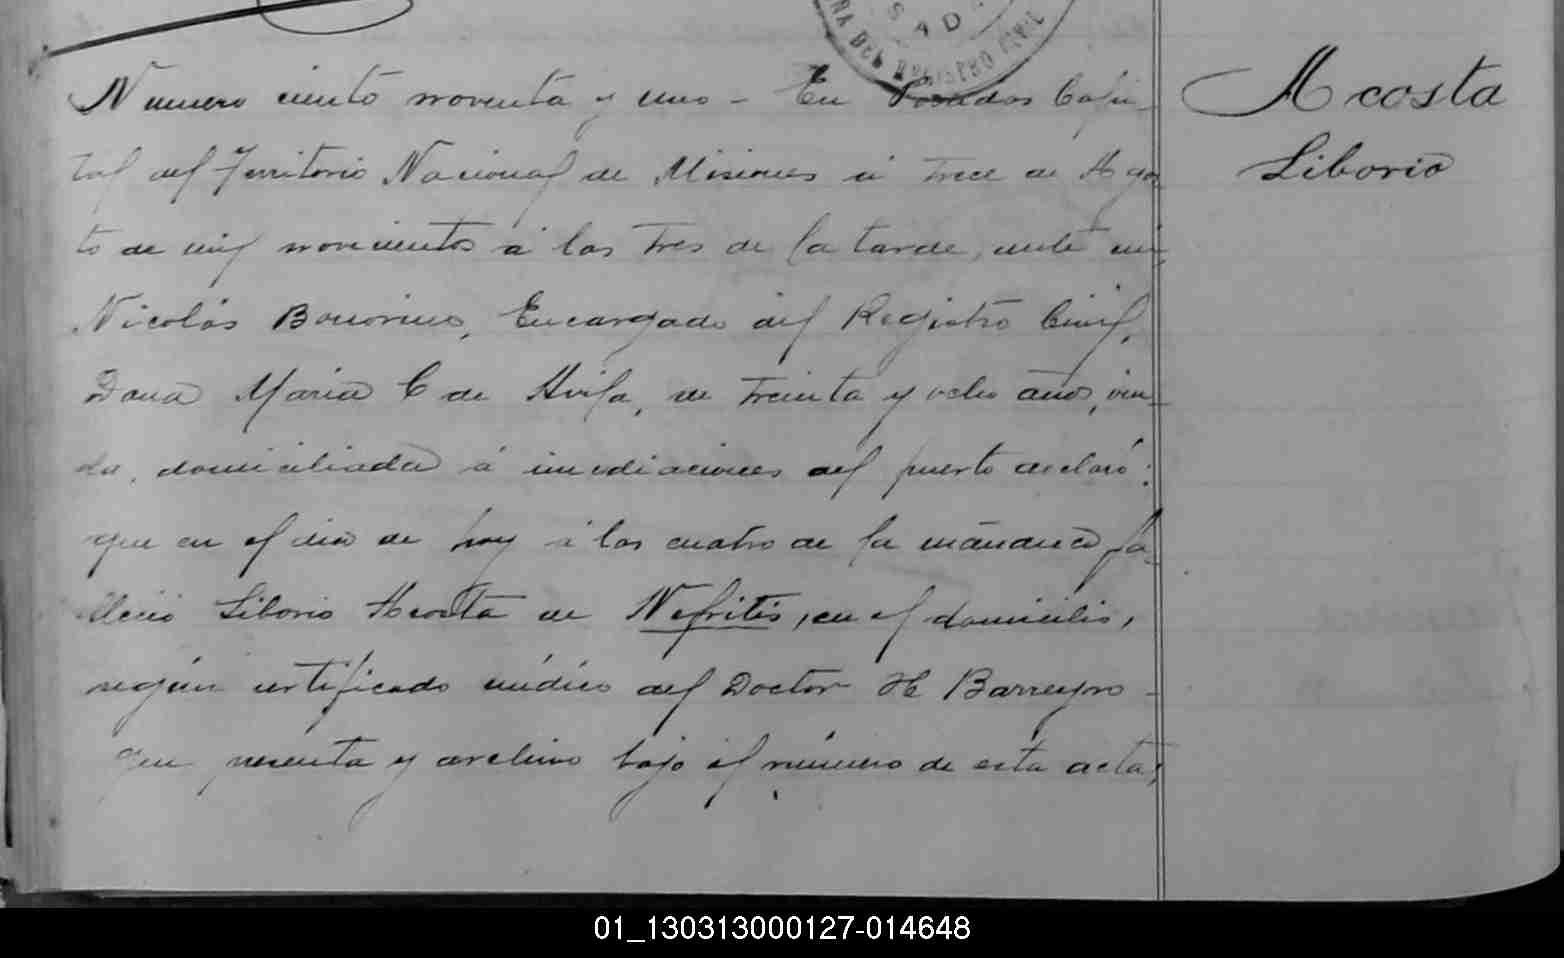 S A D
RA DEL REGISTRO CIVIL
Numero ciento noventa y uno - En Posadas Capi-
tal del Territorio Nacional de Misiones á trece de Agos
to de mil novecientos á las tres de la tarde, ante mi,
Nicolás Bonorino, Encargado del Registro Civil,
Doña Maria C de Avila, de treinta y ocho años, viu
da, domiciliada á inmediaciones del puerto declaró:
que en el dia de hoy á las cuatro de la mañana fa
lleció Liborio Acosta de Nefritis, en el domicilio,
según certificado médico del Doctor H Barreyro -
que presenta y archivo bajo el número de esta acta,
Acosta
Liborio
01_130313000127-014648